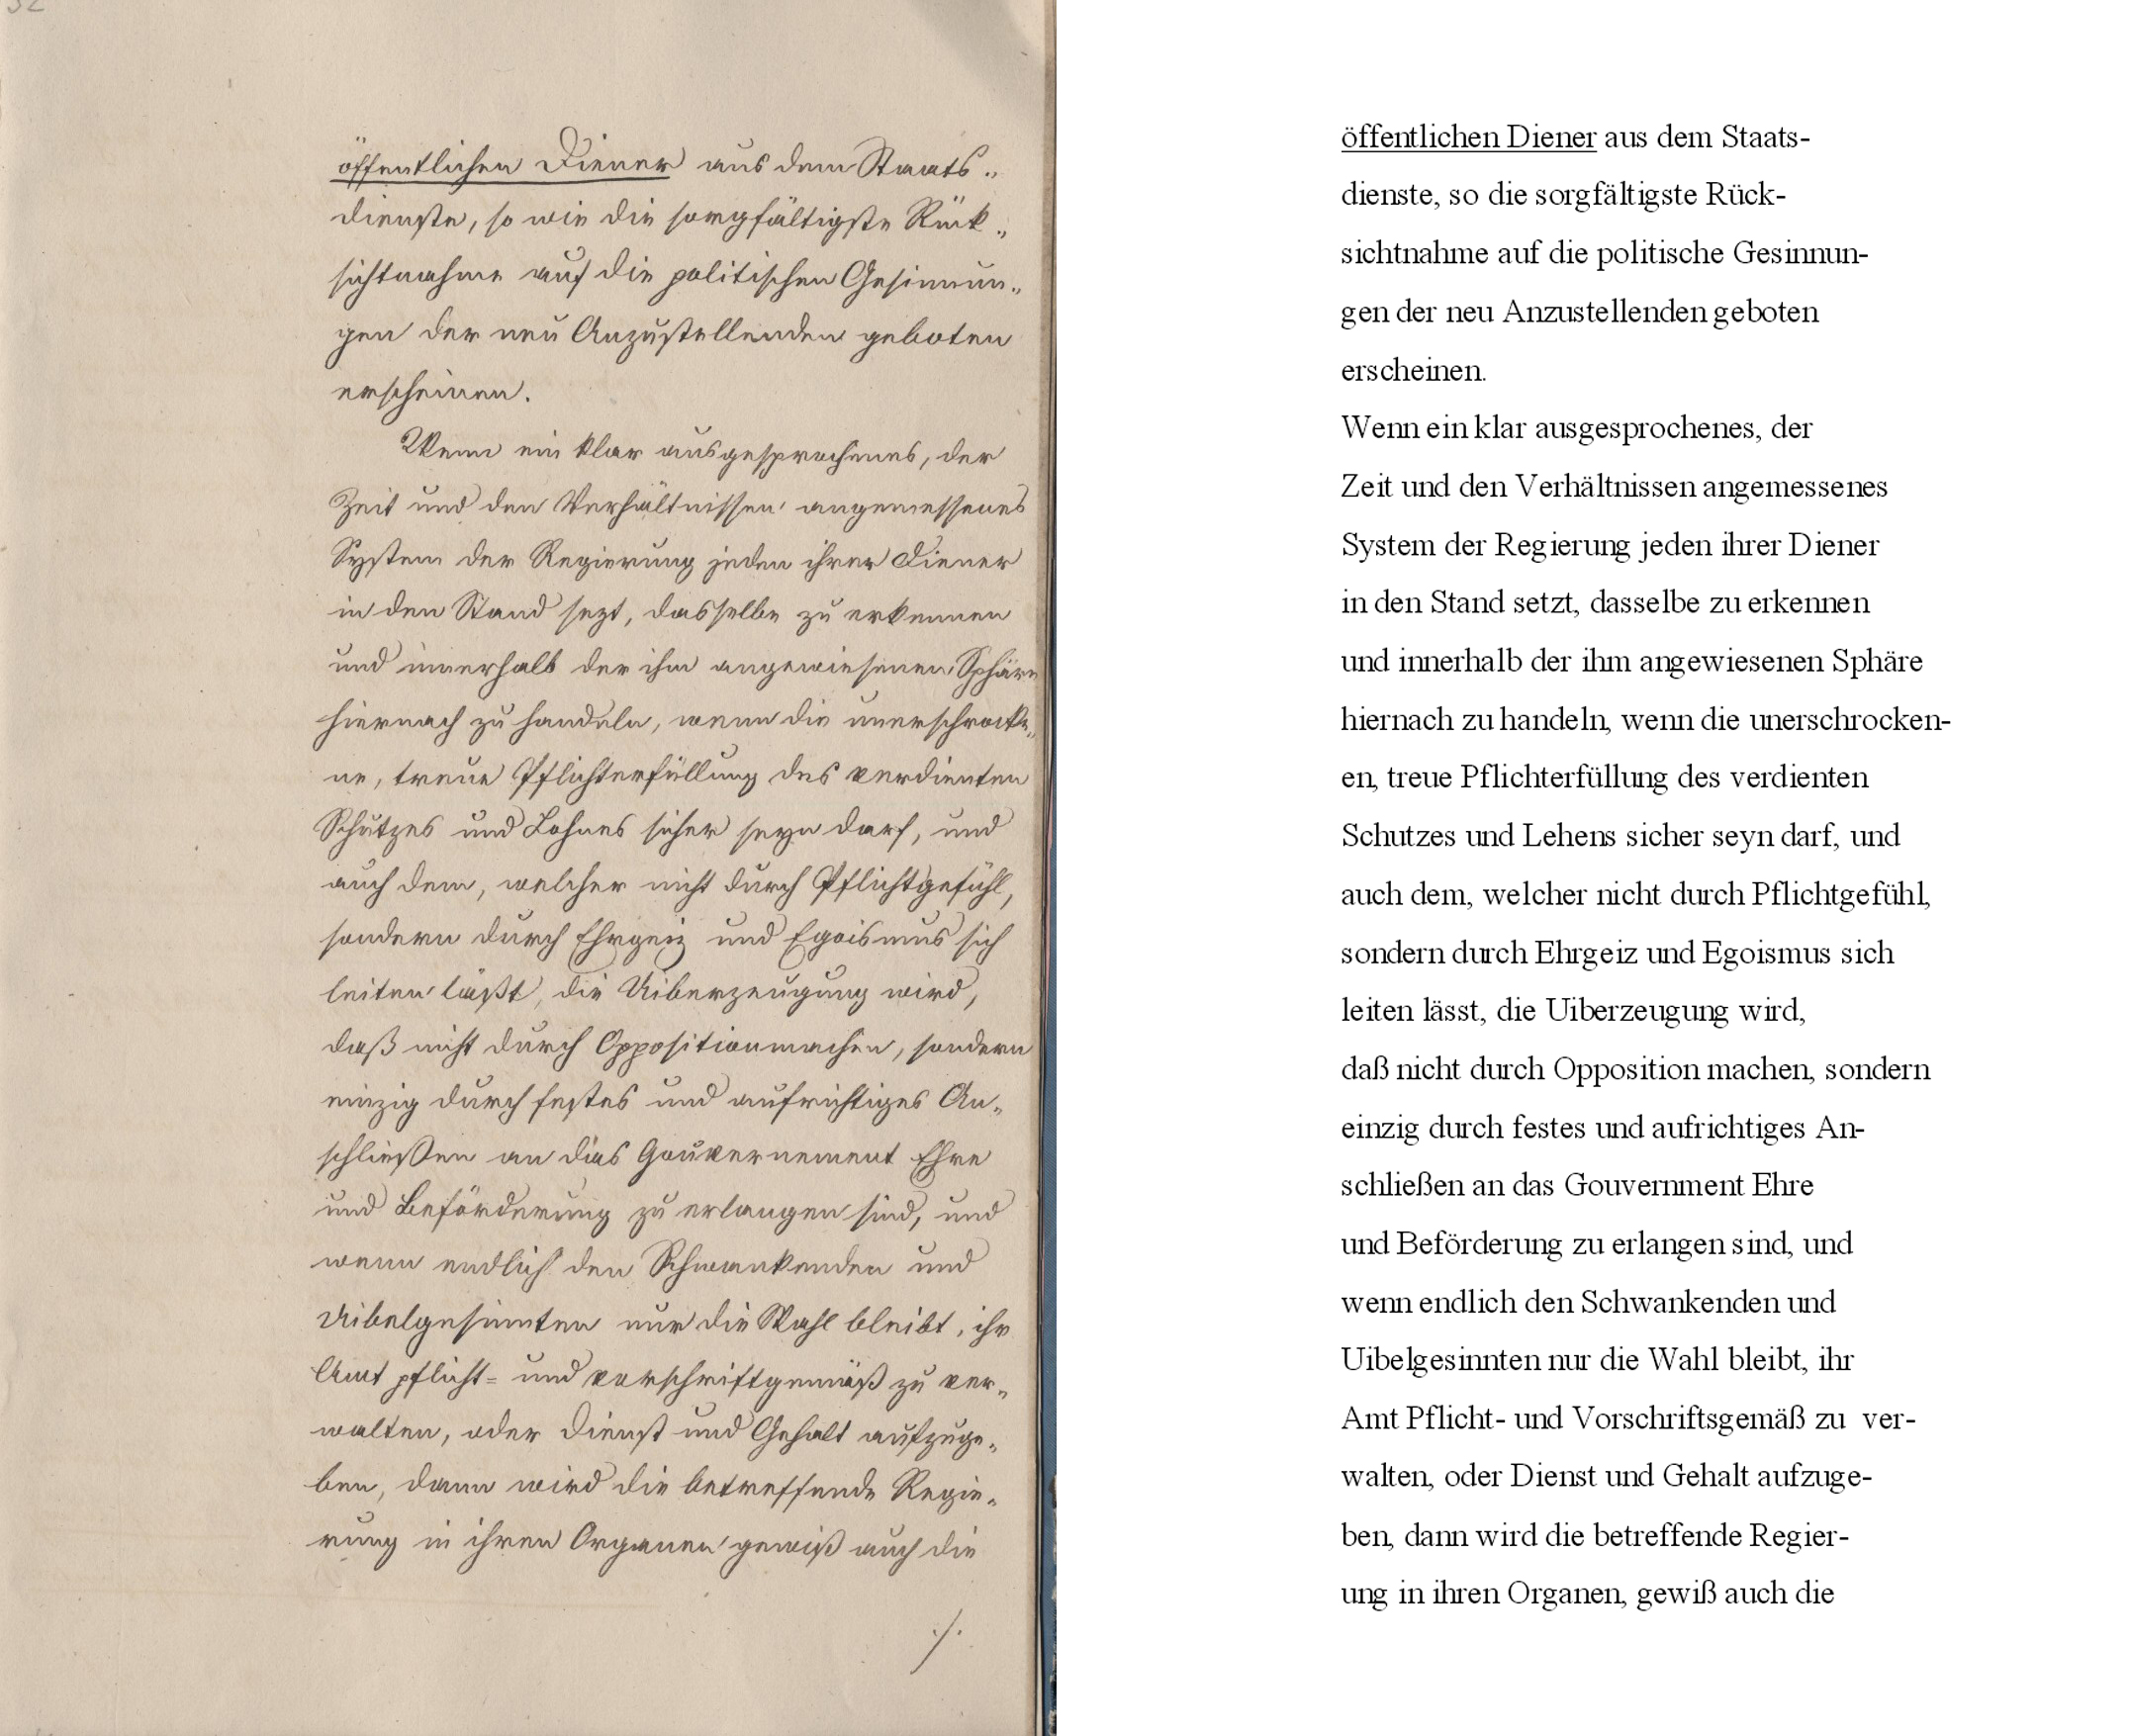 32
öffentlichen Diener aus dem Staats-
dienste, so wie die sorgfältigste Rück-
sichtnahme auf die politischen Gesinnun-
gen der neu Anzustellenden geboten
erscheinen.
Wenn ein klar ausgesprochenes, der
Zeit und den Verhältnissen angemessenes
System der Regierung jeden ihrer Diener
in den Stand sezt, dasselbe zu erkennen
und innerhalb der ihm angewiesenen Sphäre
hiernach zu handeln, wenn die unerschrocke-
ne, treue Pflichterfüllung des verdienten
Schutzes und Lohnes sicher seyn darf, und
auch dem, welcher nicht durch Pflichtgefühl,
sondern durch Ehrgeiz und Egoismus sich
leiten läßt, die Uiberzeugung wird,
daß nicht durch Oppositionmachen, sondern
einzig durch festes und aufrichtiges An-
schließen an das Gouvernement Ehre
und Beförderung zu erlangen sind, und
wenn endlich den Schwankenden und
Uibelgesinnten nur die Wahl bleibt, ihr
Amt pflicht- und vorschriftgemäß zu ver-
walten, oder Dienst und Gehalt aufzuge-
ben, dann wird die betreffende Regie-
rung in ihren Organen gewiß auch die
./.
öffentlichen Diener aus dem Staats-
dienste, so die sorgfältigste Rück-
sichtnahme auf die politische Gesinnun-
gen der neu Anzustellenden geboten
erscheinen.
Wenn ein klar ausgesprochenes, der
Zeit und den Verhältnissen angemessenes
System der Regierung jeden ihrer Diener
in den Stand setzt, dasselbe zu erkennen
und innerhalb der ihm angewiesenen Sphäre
hiernach zu handeln, wenn die unerschrocken-
en, treue Pflichterfüllung des verdienten
Schutzes und Lehens sicher seyn darf, und
auch dem, welcher nicht durch Pflichtgefühl,
sondern durch Ehrgeiz und Egoismus sich
leiten lässt, die Uiberzeugung wird,
daß nicht durch Opposition machen, sondern
einzig durch festes und aufrichtiges An-
schließen an das Gouvernment Ehre
und Beförderung zu erlangen sind, und
wenn endlich den Schwankenden und
Uibelgesinnten nur die Wahl bleibt, ihr
Amt Pflicht- und Vorschriftsgemäß zu ver-
walten, oder Dienst und Gehalt aufzuge-
ben, dann wird die betreffende Regier-
ung in ihren Organen, gewiß auch die